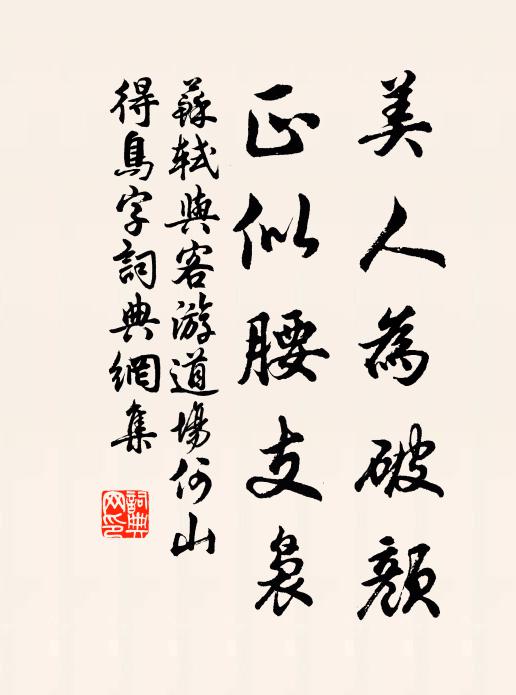 美人為破顏
正似腰支裊
蘇軾與客游道場何山
得鳥字詞典網集
詞典网印